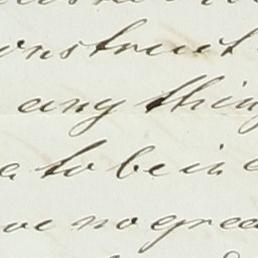 onstruct
any thing
to be in
ve no grea